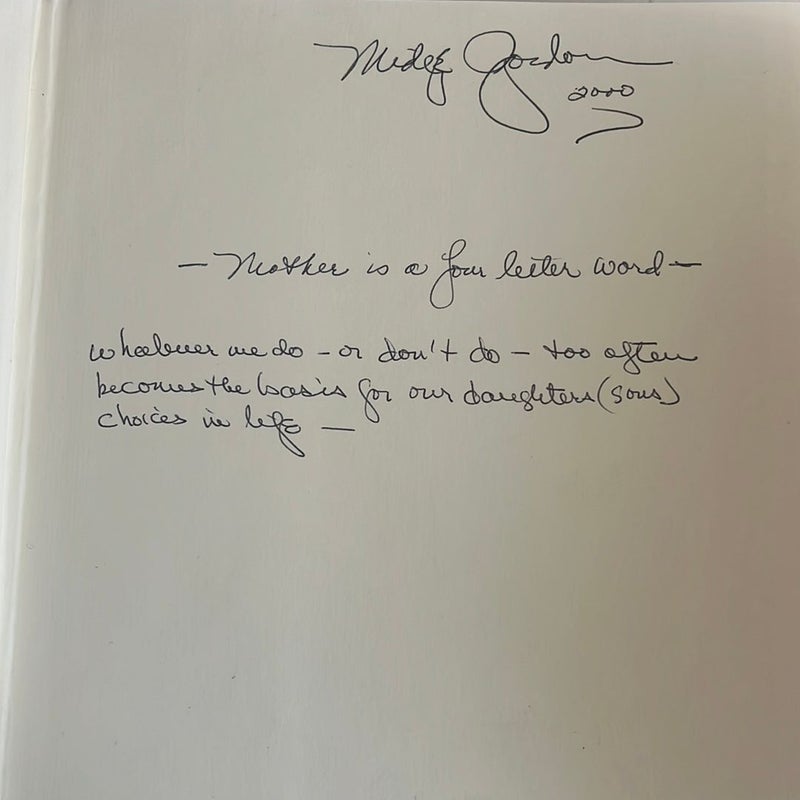 Midge Gordon
2000
— Mother is a four letter word —
whatever we do – or don't do – too often
becomes the basis for our daughters (sons)
choices in life —